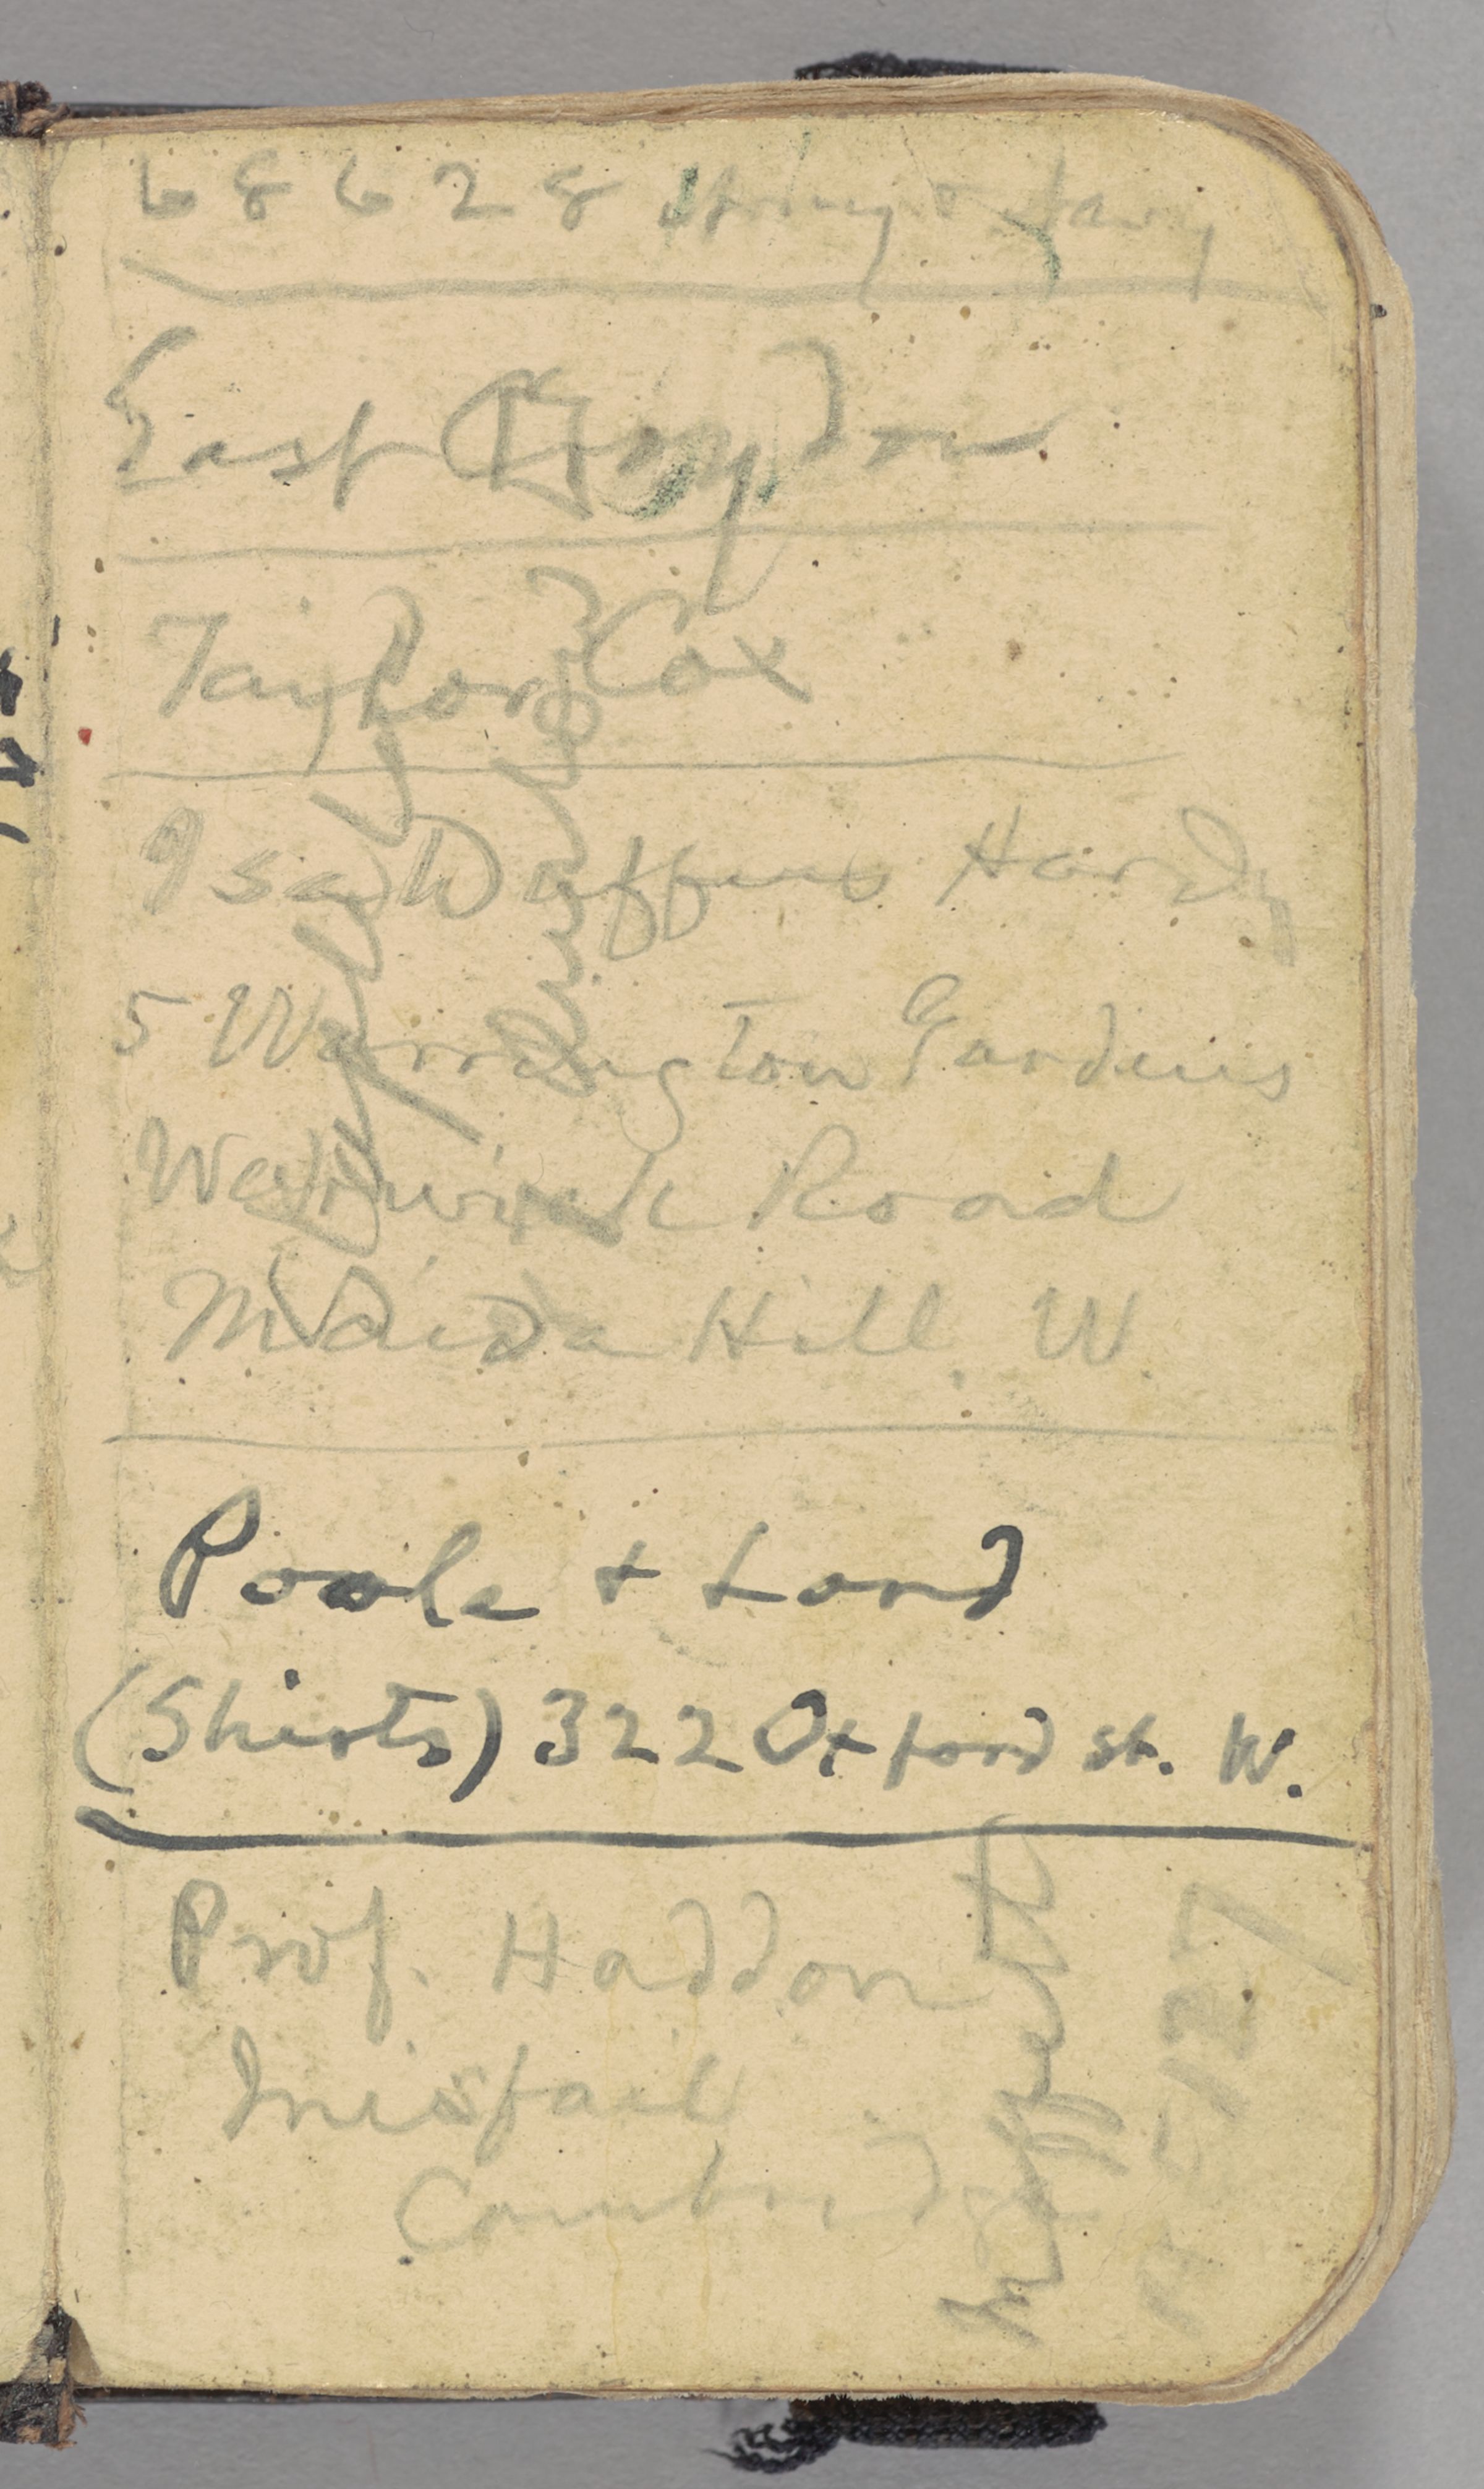 68628 Army & Navy
East Croydon
Taylor Cox
Isa Duffus Hardy
5 Warrington Gardens
Warwick Road
Maida Hill. W
Poole + Lord
(Shirts) 322 Oxford St. W.
Prof. Haddon
Inisfail
Cambridge